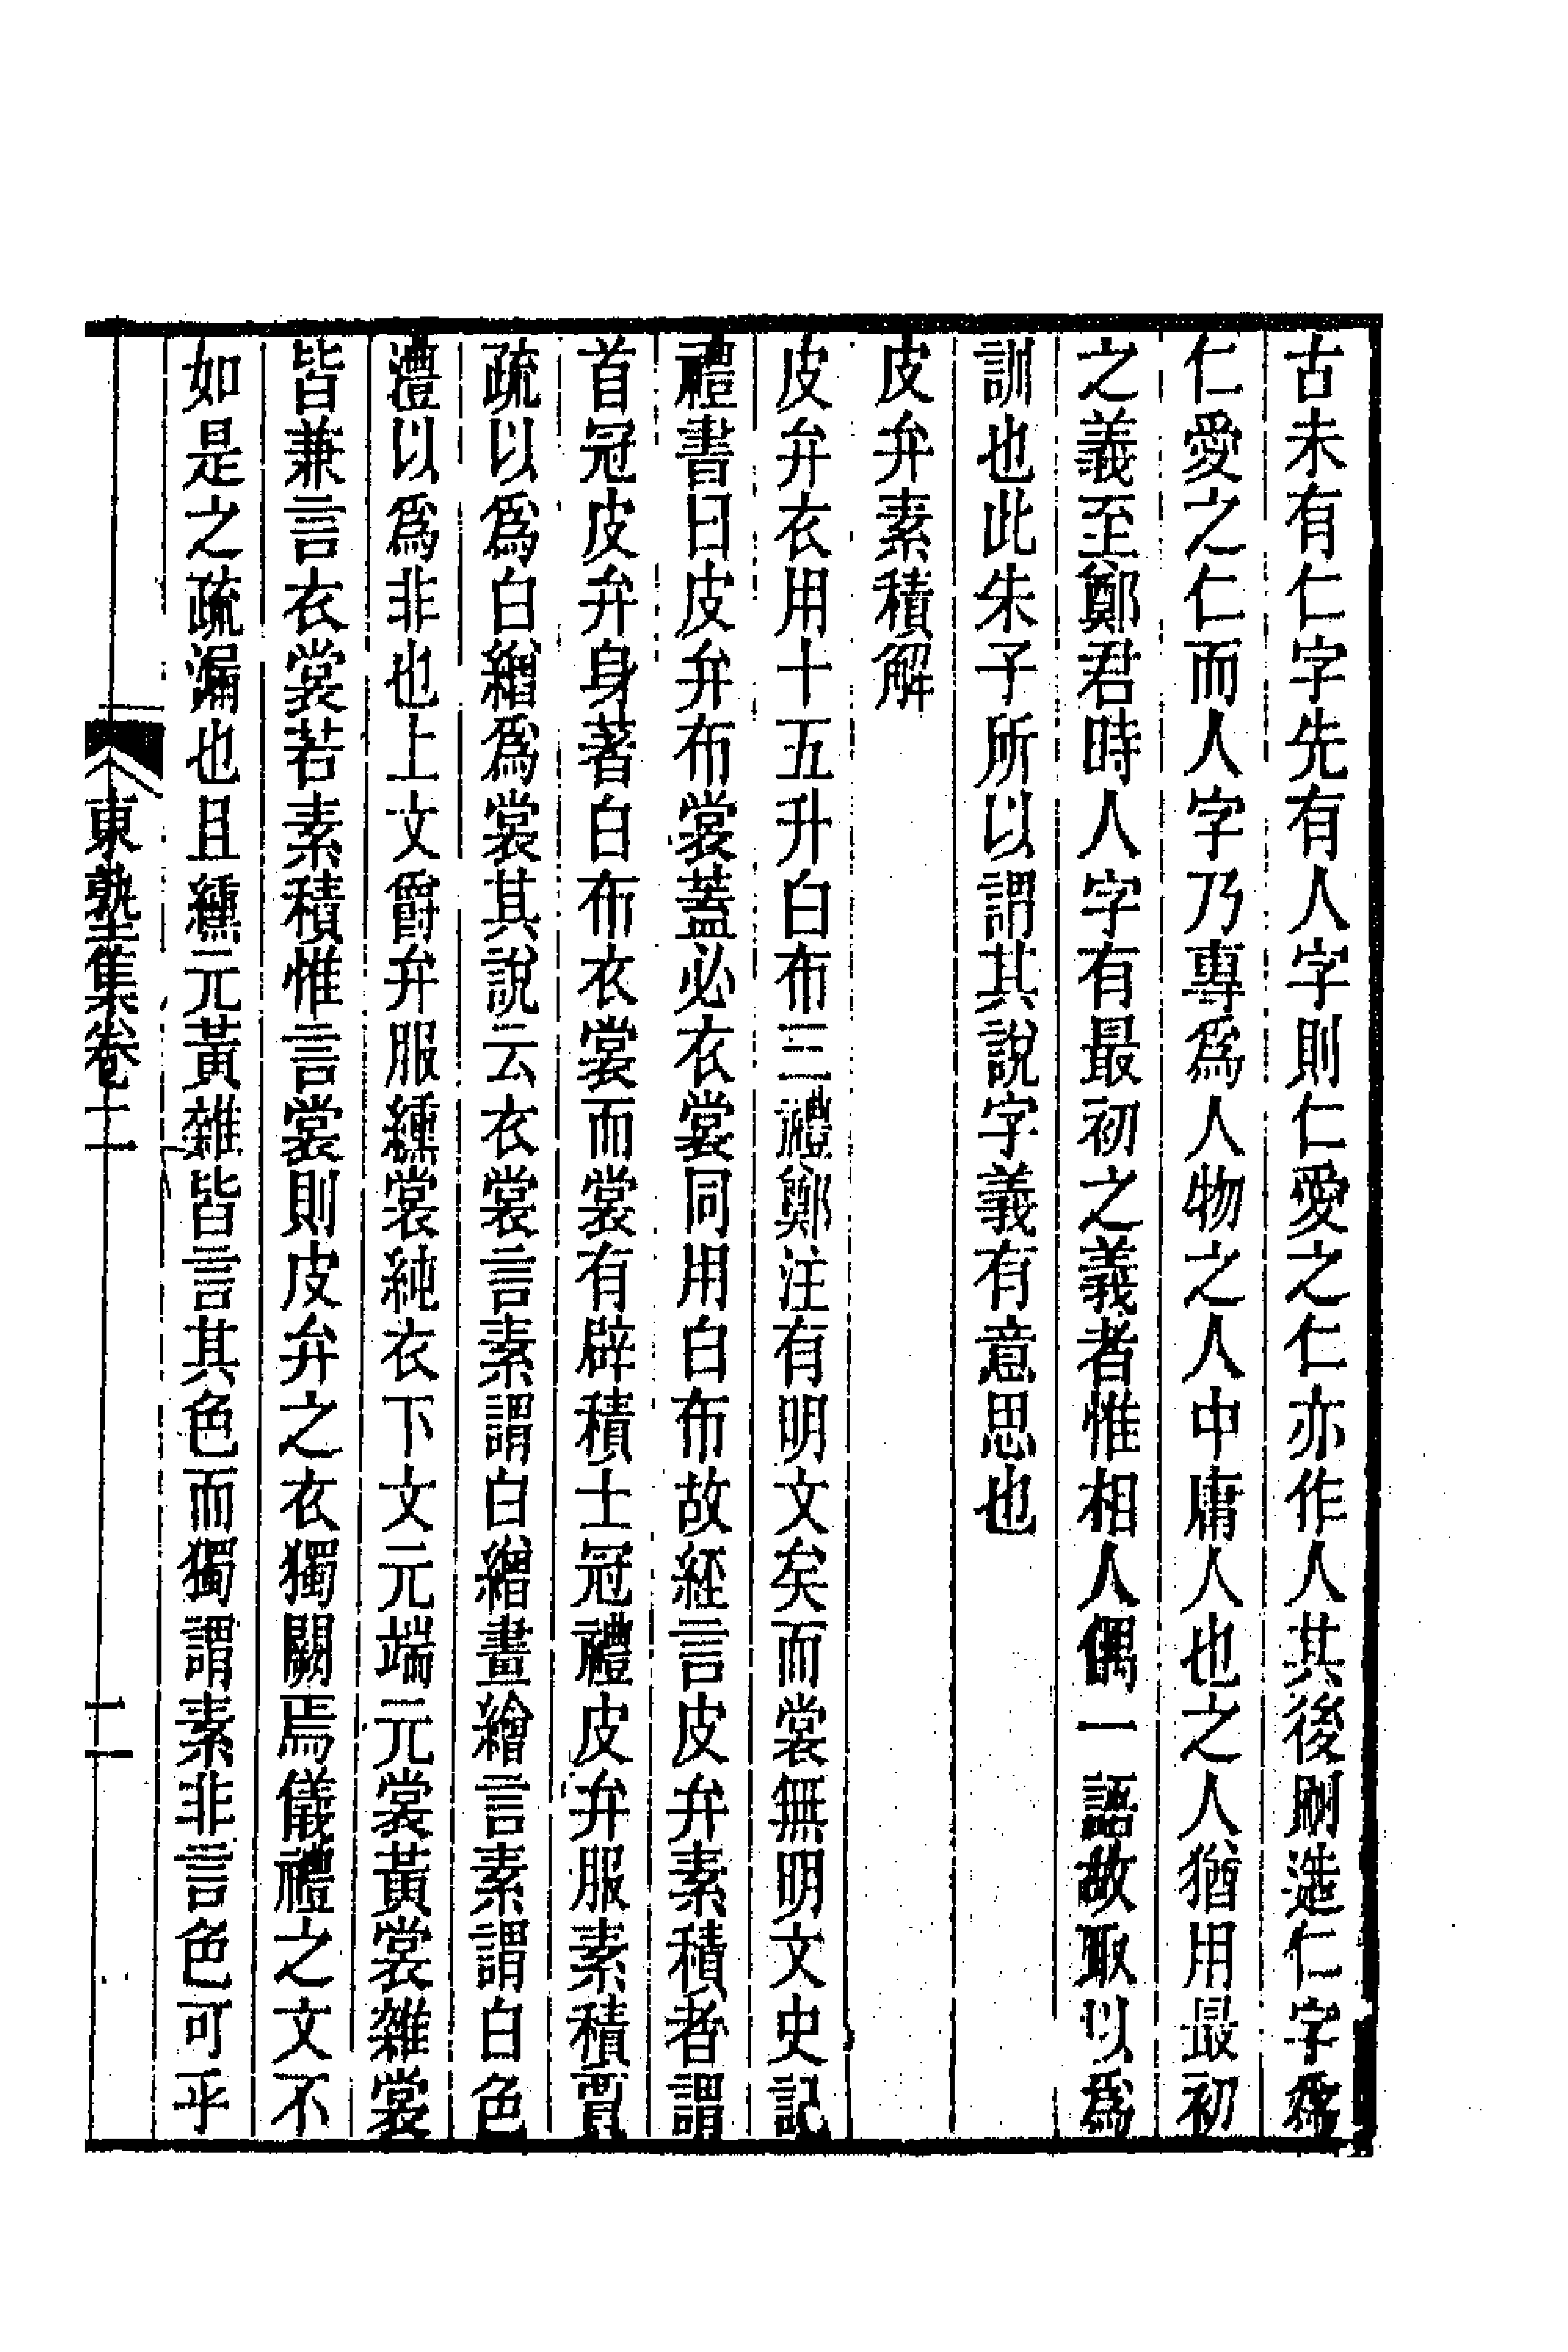 古未有仁字先有人字則仁愛之仁亦作人其後剏造仁字爲
仁愛之仁而人字乃專爲人物之人中庸人也之人猶用最初
之義至鄭君時人字有最初之義者惟相人偶一語故取以爲
訓也此朱子所以謂其說字義有意思也
皮弁素積解
皮弁衣用十五升白布三禮鄭注有明文矣而裳無明文史記
禮書曰皮弁布裳蓋必衣裳同用白布故經言皮弁素積者謂
首冠皮弁身著白布衣裳而裳有辟積士冠禮皮弁服素積賈
疏以爲白繒爲裳其說云衣裳言素謂白繒畫繪言素謂白色
澧以爲非也上文爵弁服纁裳純衣下文元端元裳黃裳雜裳
皆兼言衣裳若素積惟言裳則皮弁之衣獨闕焉儀禮之文不
如是之疏漏也且纁元黃雜皆言其色而獨謂素非言色可乎
東塾集卷二
二